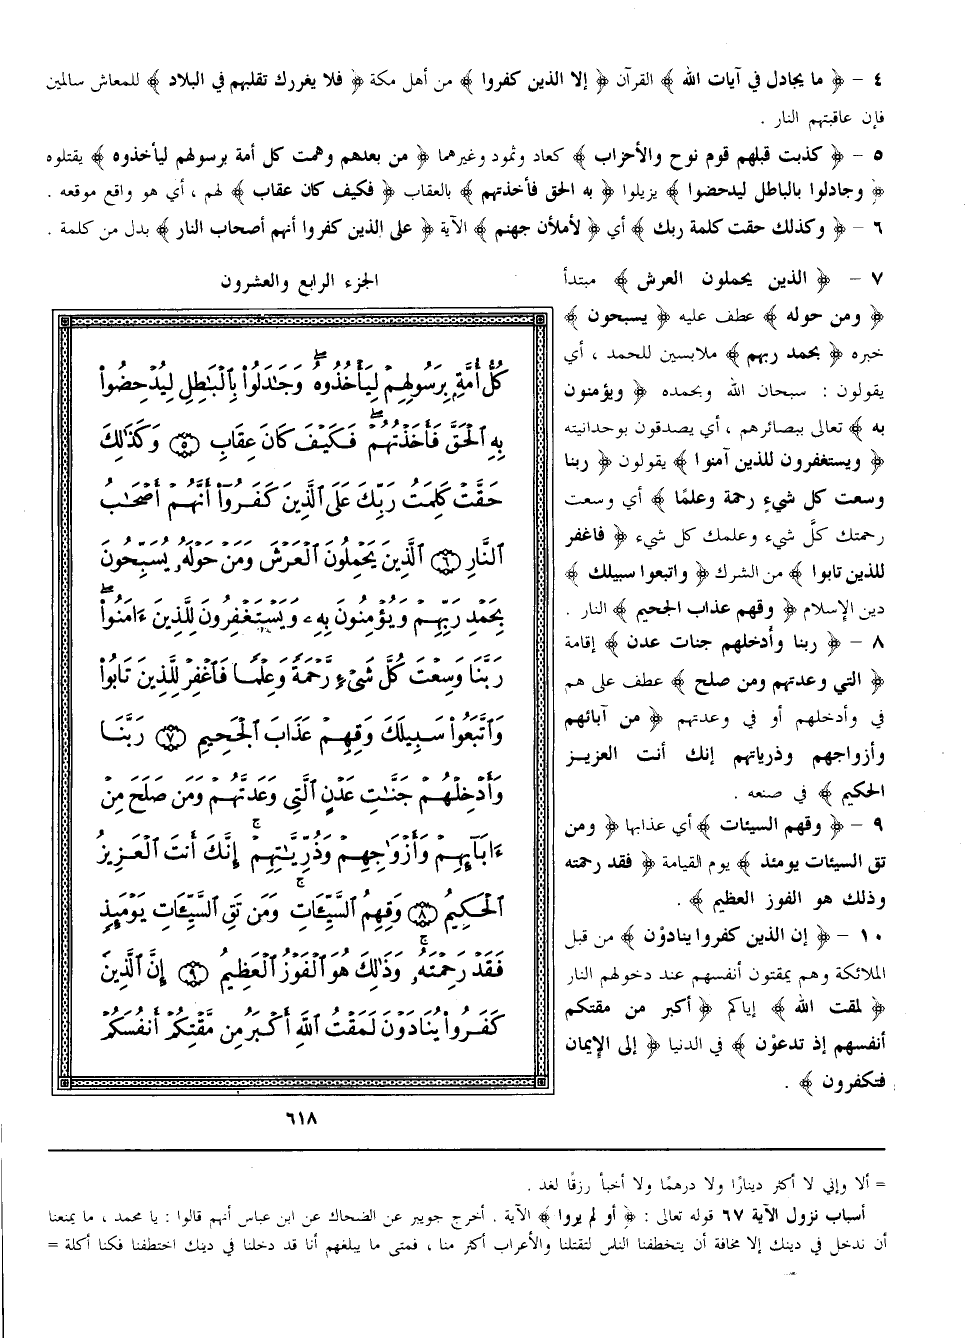 ٤ – ﴿ ما يجادل في آيات الله ﴾ القرآن ﴿ إلا الذين كفروا ﴾ من أهل مكة ﴿ فلا يغررك تقلبهم في البلاد ﴾ للمعاش سالمين
فإن عاقبتهم النار .
٥ – ﴿ كذبت قبلهم قوم نوح والأحزاب ﴾ كعاد وثمود وغيرهما ﴿ من بعدهم وهمت كل أمة برسولهم ليأخذوه ﴾ يقتلوه
﴿ وجادلوا بالباطل ليدحضوا ﴾ يزيلوا ﴿ به الحق فأخذتهم ﴾ بالعقاب ﴿ فكيف كان عقاب ﴾ لهم ، أي هو واقع موقعه .
٦ – ﴿ وكذلك حقت كلمة ربك ﴾ أي ﴿ لأملأن جهنم ﴾ الآية ﴿ على الذين كفروا أنهم أصحاب النار ﴾ بدل من كلمة .
٧ – ﴿ الذين يحملون العرش ﴾ مبتدأ
﴿ ومن حوله ﴾ عطف عليه ﴿ يسبحون ﴾
خبره ﴿ بحمد ربهم ﴾ ملابسين للحمد ، أي
يقولون : سبحان الله وبحمده ﴿ ويؤمنون
به ﴾ تعالى ببصائرهم ، أي يصدقون بوحدانيته
﴿ ويستغفرون للذين آمنوا ﴾ يقولون ﴿ ربنا
وسعت كل شيءٍ رحمة وعلمًا ﴾ أي وسعت
رحمتك كلَّ شيء وعلمك كل شيء ﴿ فاغفر
للذين تابوا ﴾ من الشرك ﴿ واتبعوا سبيلك ﴾
دين الإسلام ﴿ وقهم عذاب الجحيم ﴾ النار .
٨ – ﴿ ربنا وأدخلهم جنات عدن ﴾ إقامة
﴿ التي وعدتهم ومن صلح ﴾ عطف على هم
في وأدخلهم أو في وعدتهم ﴿ من آبائهم
وأزواجهم وذرياتهم إنك أنت العزيز
الحكيم ﴾ في صنعه .
٩ – ﴿ وقهم السيئات ﴾ أي عذابها ﴿ ومن
تق السيئات يومئذ ﴾ يوم القيامة ﴿ فقد رحمته
وذلك هو الفوز العظيم ﴾ .
١٠ – ﴿ إن الذين كفروا ينادوْن ﴾ من قبل
الملائكة وهم يمقتون أنفسهم عند دخولهم النار
﴿ لمقت الله ﴾ إياكم ﴿ أكبر من مقتكم
أنفسهم إذ تدعوْن ﴾ في الدنيا ﴿ إلى الإيمان
فتكفرون ﴾ .
الجزء الرابع والعشرون
كُلُّ أُمَّةٍ بِرَسُولِهِمْ لِيَأْخُذُوهُ ۖ وَجَٰدَلُوا۟ بِالْبَٰطِلِ لِيُدْحِضُوا۟
بِهِ الْحَقَّ فَأَخَذْتُهُمْ ۖ فَكَيْفَ كَانَ عِقَابِ ۝٥ وَكَذَٰلِكَ
حَقَّتْ كَلِمَتُ رَبِّكَ عَلَى الَّذِينَ كَفَرُوٓا۟ أَنَّهُمْ أَصْحَٰبُ
النَّارِ ۝٦ الَّذِينَ يَحْمِلُونَ الْعَرْشَ وَمَنْ حَوْلَهُۥ يُسَبِّحُونَ
بِحَمْدِ رَبِّهِمْ وَيُؤْمِنُونَ بِهِۦ وَيَسْتَغْفِرُونَ لِلَّذِينَ ءَامَنُوا۟ ۖ
رَبَّنَا وَسِعْتَ كُلَّ شَىْءٍ رَّحْمَةً وَعِلْمًا فَاغْفِرْ لِلَّذِينَ تَابُوا۟
وَاتَّبَعُوا۟ سَبِيلَكَ وَقِهِمْ عَذَابَ الْجَحِيمِ ۝٧ رَبَّنَا
وَأَدْخِلْهُمْ جَنَّٰتِ عَدْنٍ الَّتِى وَعَدتَّهُمْ وَمَن صَلَحَ مِنْ
ءَابَآئِهِمْ وَأَزْوَٰجِهِمْ وَذُرِّيَّٰتِهِمْ ۚ إِنَّكَ أَنتَ الْعَزِيزُ
الْحَكِيمُ ۝٨ وَقِهِمُ السَّيِّـَٔاتِ ۚ وَمَن تَقِ السَّيِّـَٔاتِ يَوْمَئِذٍ
فَقَدْ رَحِمْتَهُۥ ۚ وَذَٰلِكَ هُوَ الْفَوْزُ الْعَظِيمُ ۝٩ إِنَّ الَّذِينَ
كَفَرُوا۟ يُنَادَوْنَ لَمَقْتُ اللَّهِ أَكْبَرُ مِن مَّقْتِكُمْ أَنفُسَكُمْ
٦١٨
= ألا وإني لا أكثر دينارًا ولا درهمًا ولا أخبأ رزقًا لغد .
أسباب نزول الآية ٦٧ قوله تعالى : ﴿ أو لم يروا ﴾ الآية . أخرج جويبر عن الضحاك عن ابن عباس أنهم قالوا : يا محمد ، ما يمنعنا
أن ندخل في دينك إلا مخافة أن يتخطفنا الناس لتقتلنا والأعراب أكثر منا ، فمتى ما يبلغهم أنا قد دخلنا في دينك اختطفنا فكنا أكلة =